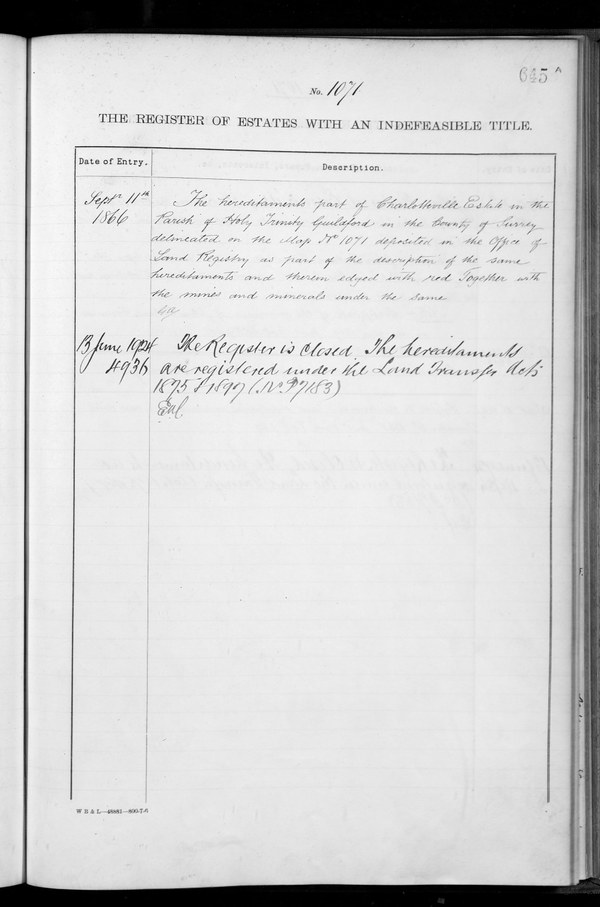 645 A
No. 1071
THE REGISTER OF ESTATES WITH AN INDEFEASIBLE TITLE.
Date of Entry.
Description.
Septr 11th
1866
The hereditaments part of Charlotteville Estate in the
Parish of Holy Trinity Guildford in the County of Surrey
delineated on the Map No 1071 deposited in the Office of
Land Registry as part of the description of the same
hereditaments and therein edged with red Together with
the mines and minerals under the same
13 June 1924
4936
The Register is closed. The hereditaments
are registered under the Land Transfer Acts
1875 & 1897 (No P7183)
W B & L.—48881—800-7-6